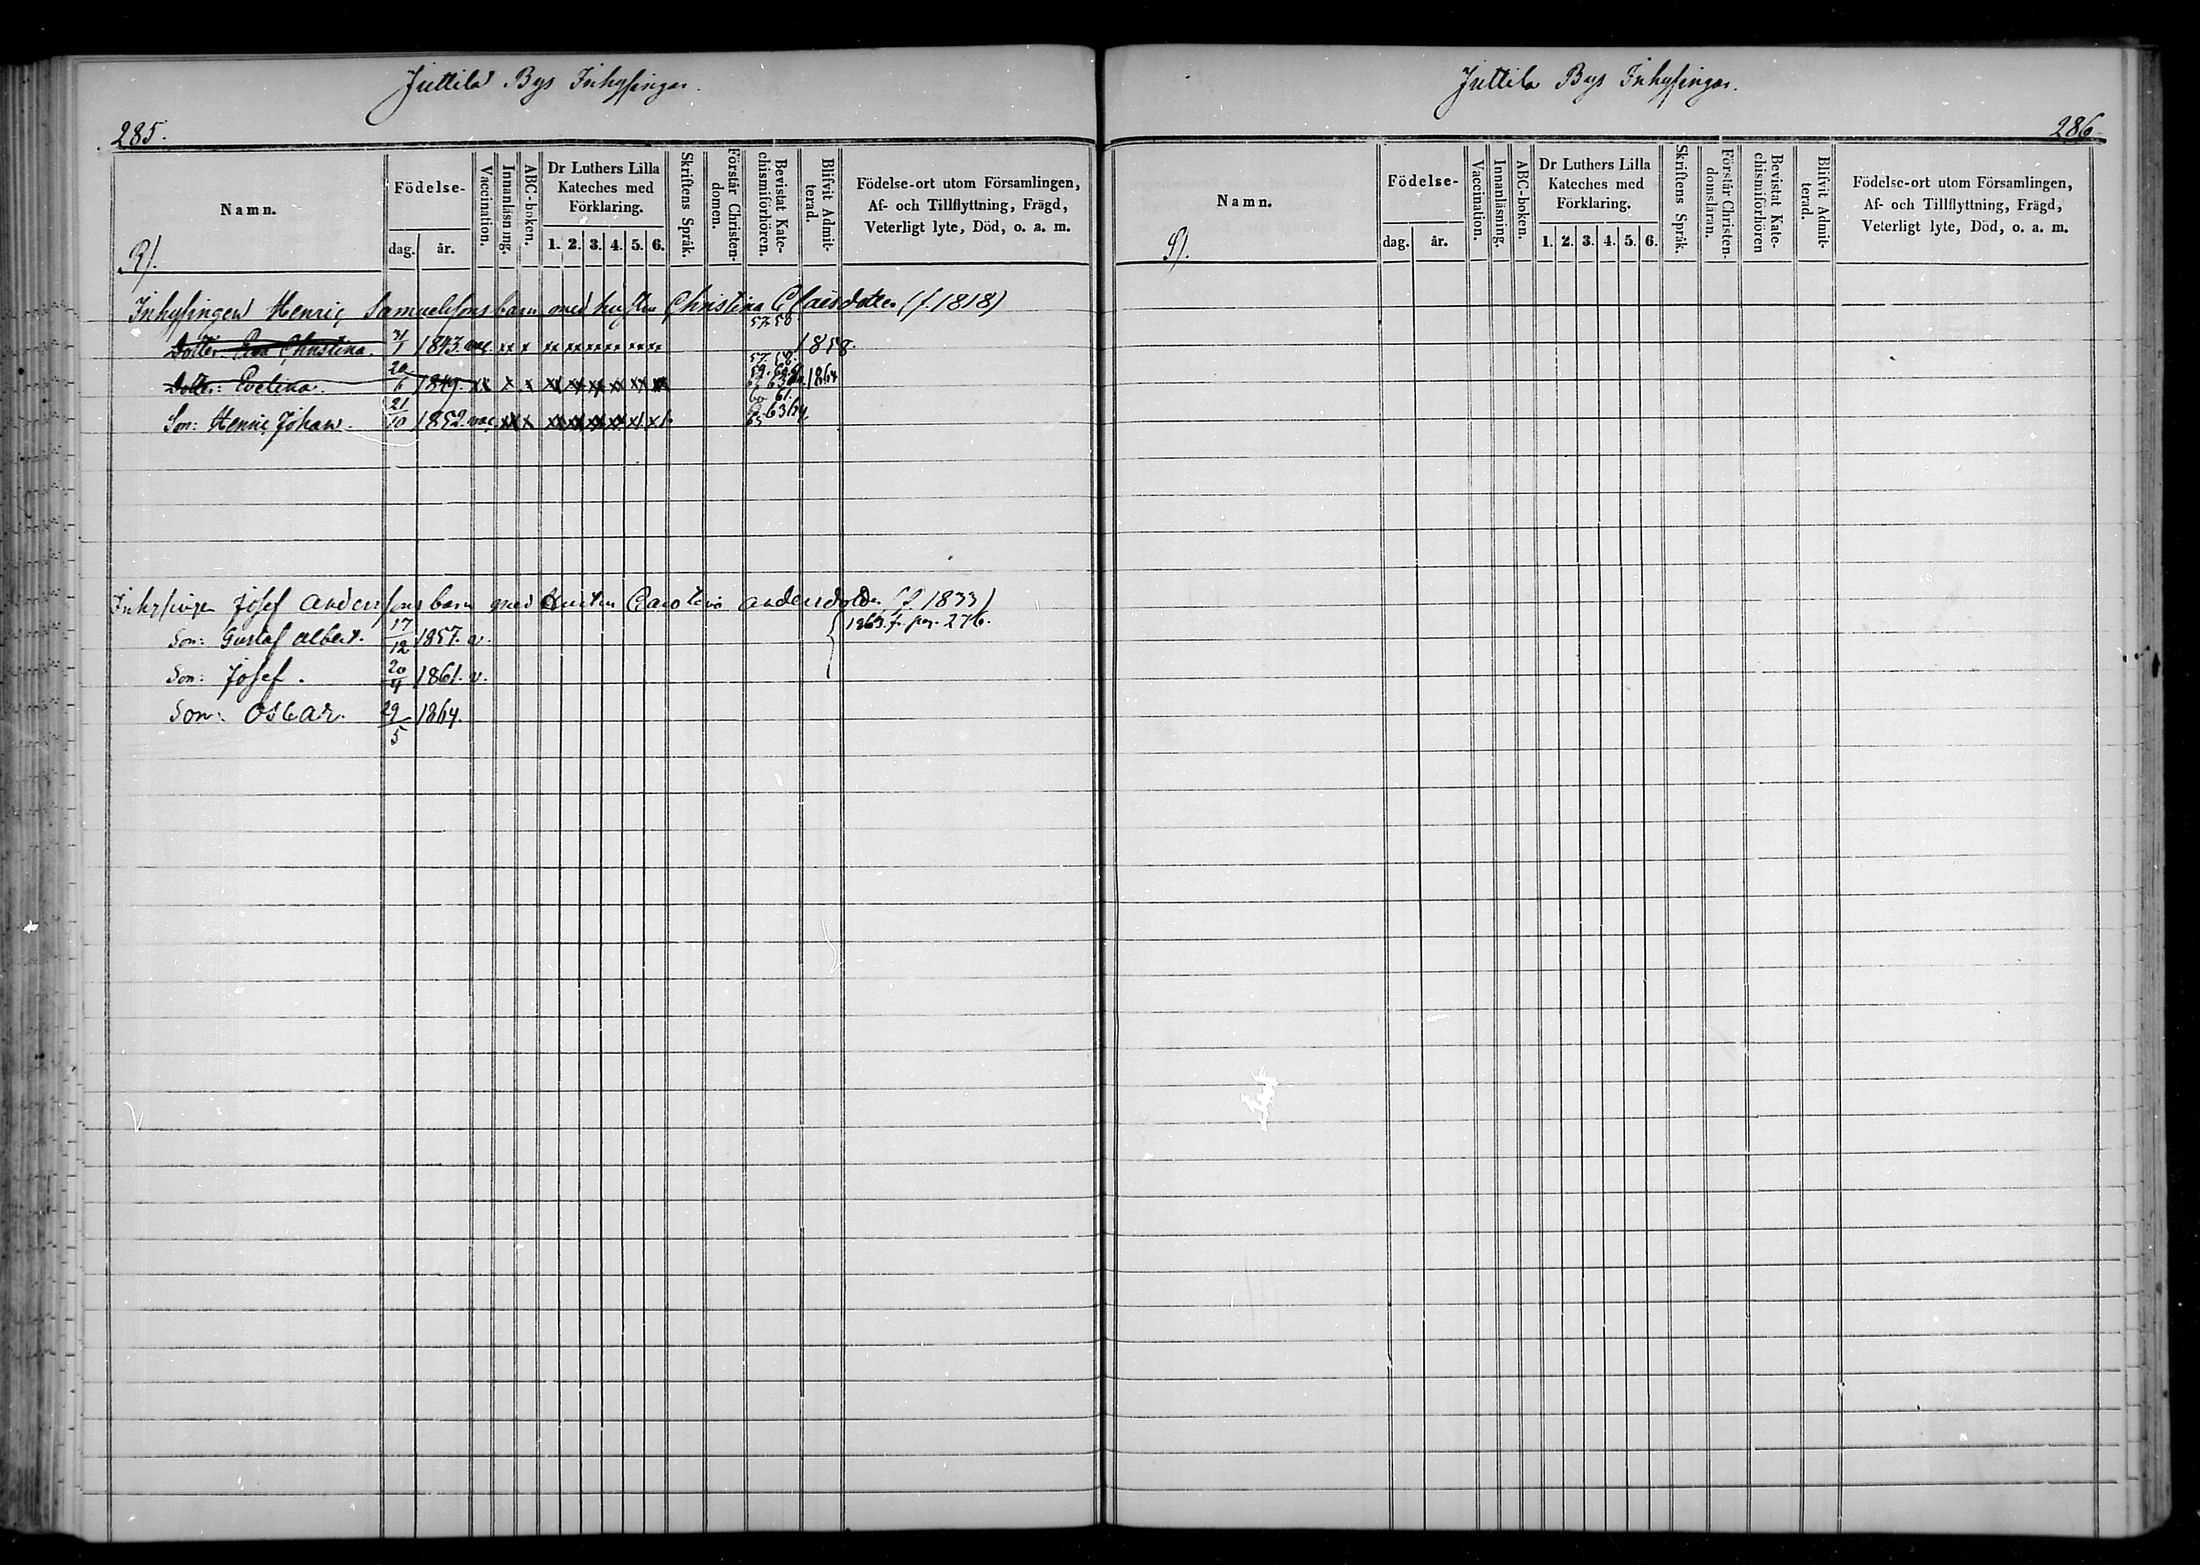 Juttila Bys Inhysingar.
285.
Namn.
Födelse-
dag.
år.
Vaccination.
Innanläsning.
ABC-boken.
Dr Luthers Lilla
Kateches med
Förklaring.
1. 2. 3. 4. 5. 6.
Skriftens Språk.
Förstår Christen-
domen.
Bevistat Kate-
chismiförhören.
Blifvit Admit-
terad.
Födelse-ort utom Församlingen,
Af- och Tillflyttning, Frägd,
Veterligt lyte, Död, o. a. m.
Inhysingen Henric Samuelssons barn med hustru Christina Claesdotter (f. 1818)
57 58
Dotter Eva Christina. 31/1 1843. vac x x x x x x x x x 1858.
Dotter: Evelina. 20/6 1849. x x x x x x x x x 1864
60 61.
Son: Henric Johan. 21/10 1852. vac x x x x x x x x 63 64
Inhysingen Josef Anderssons barn med Hustru Carolina Andersdotter (f. 1833)
Son: Gustaf Albert. 17/12 1857. v. 1863 f. pag. 276.
Son: Josef. 20/4 1861. v.
Son: Oscar. 29/5 1864.
Juttila Bys Inhysingar.
286.
Namn.
Födelse-
dag.
år.
Vaccination.
Innanläsning.
ABC-boken.
Dr Luthers Lilla
Kateches med
Förklaring.
1. 2. 3. 4. 5. 6.
Skriftens Språk.
Förstår Christen-
domsläran.
Bevistat Kate-
chismiförhören
Blifvit Admit-
terad.
Födelse-ort utom Församlingen,
Af- och Tillflyttning, Frägd,
Veterligt lyte, Död, o. a. m.